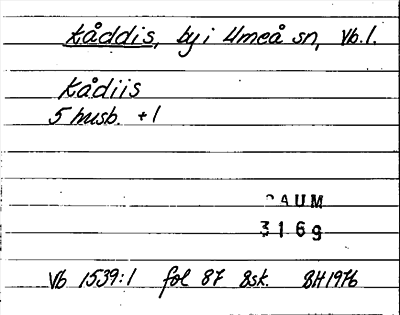 Kåddis, by i Umeå sn, Vb. l.
Kådiis
5 husb. + 1
DAUM
3169
Vb 1539:1 fol 87 8sk. BH 1976